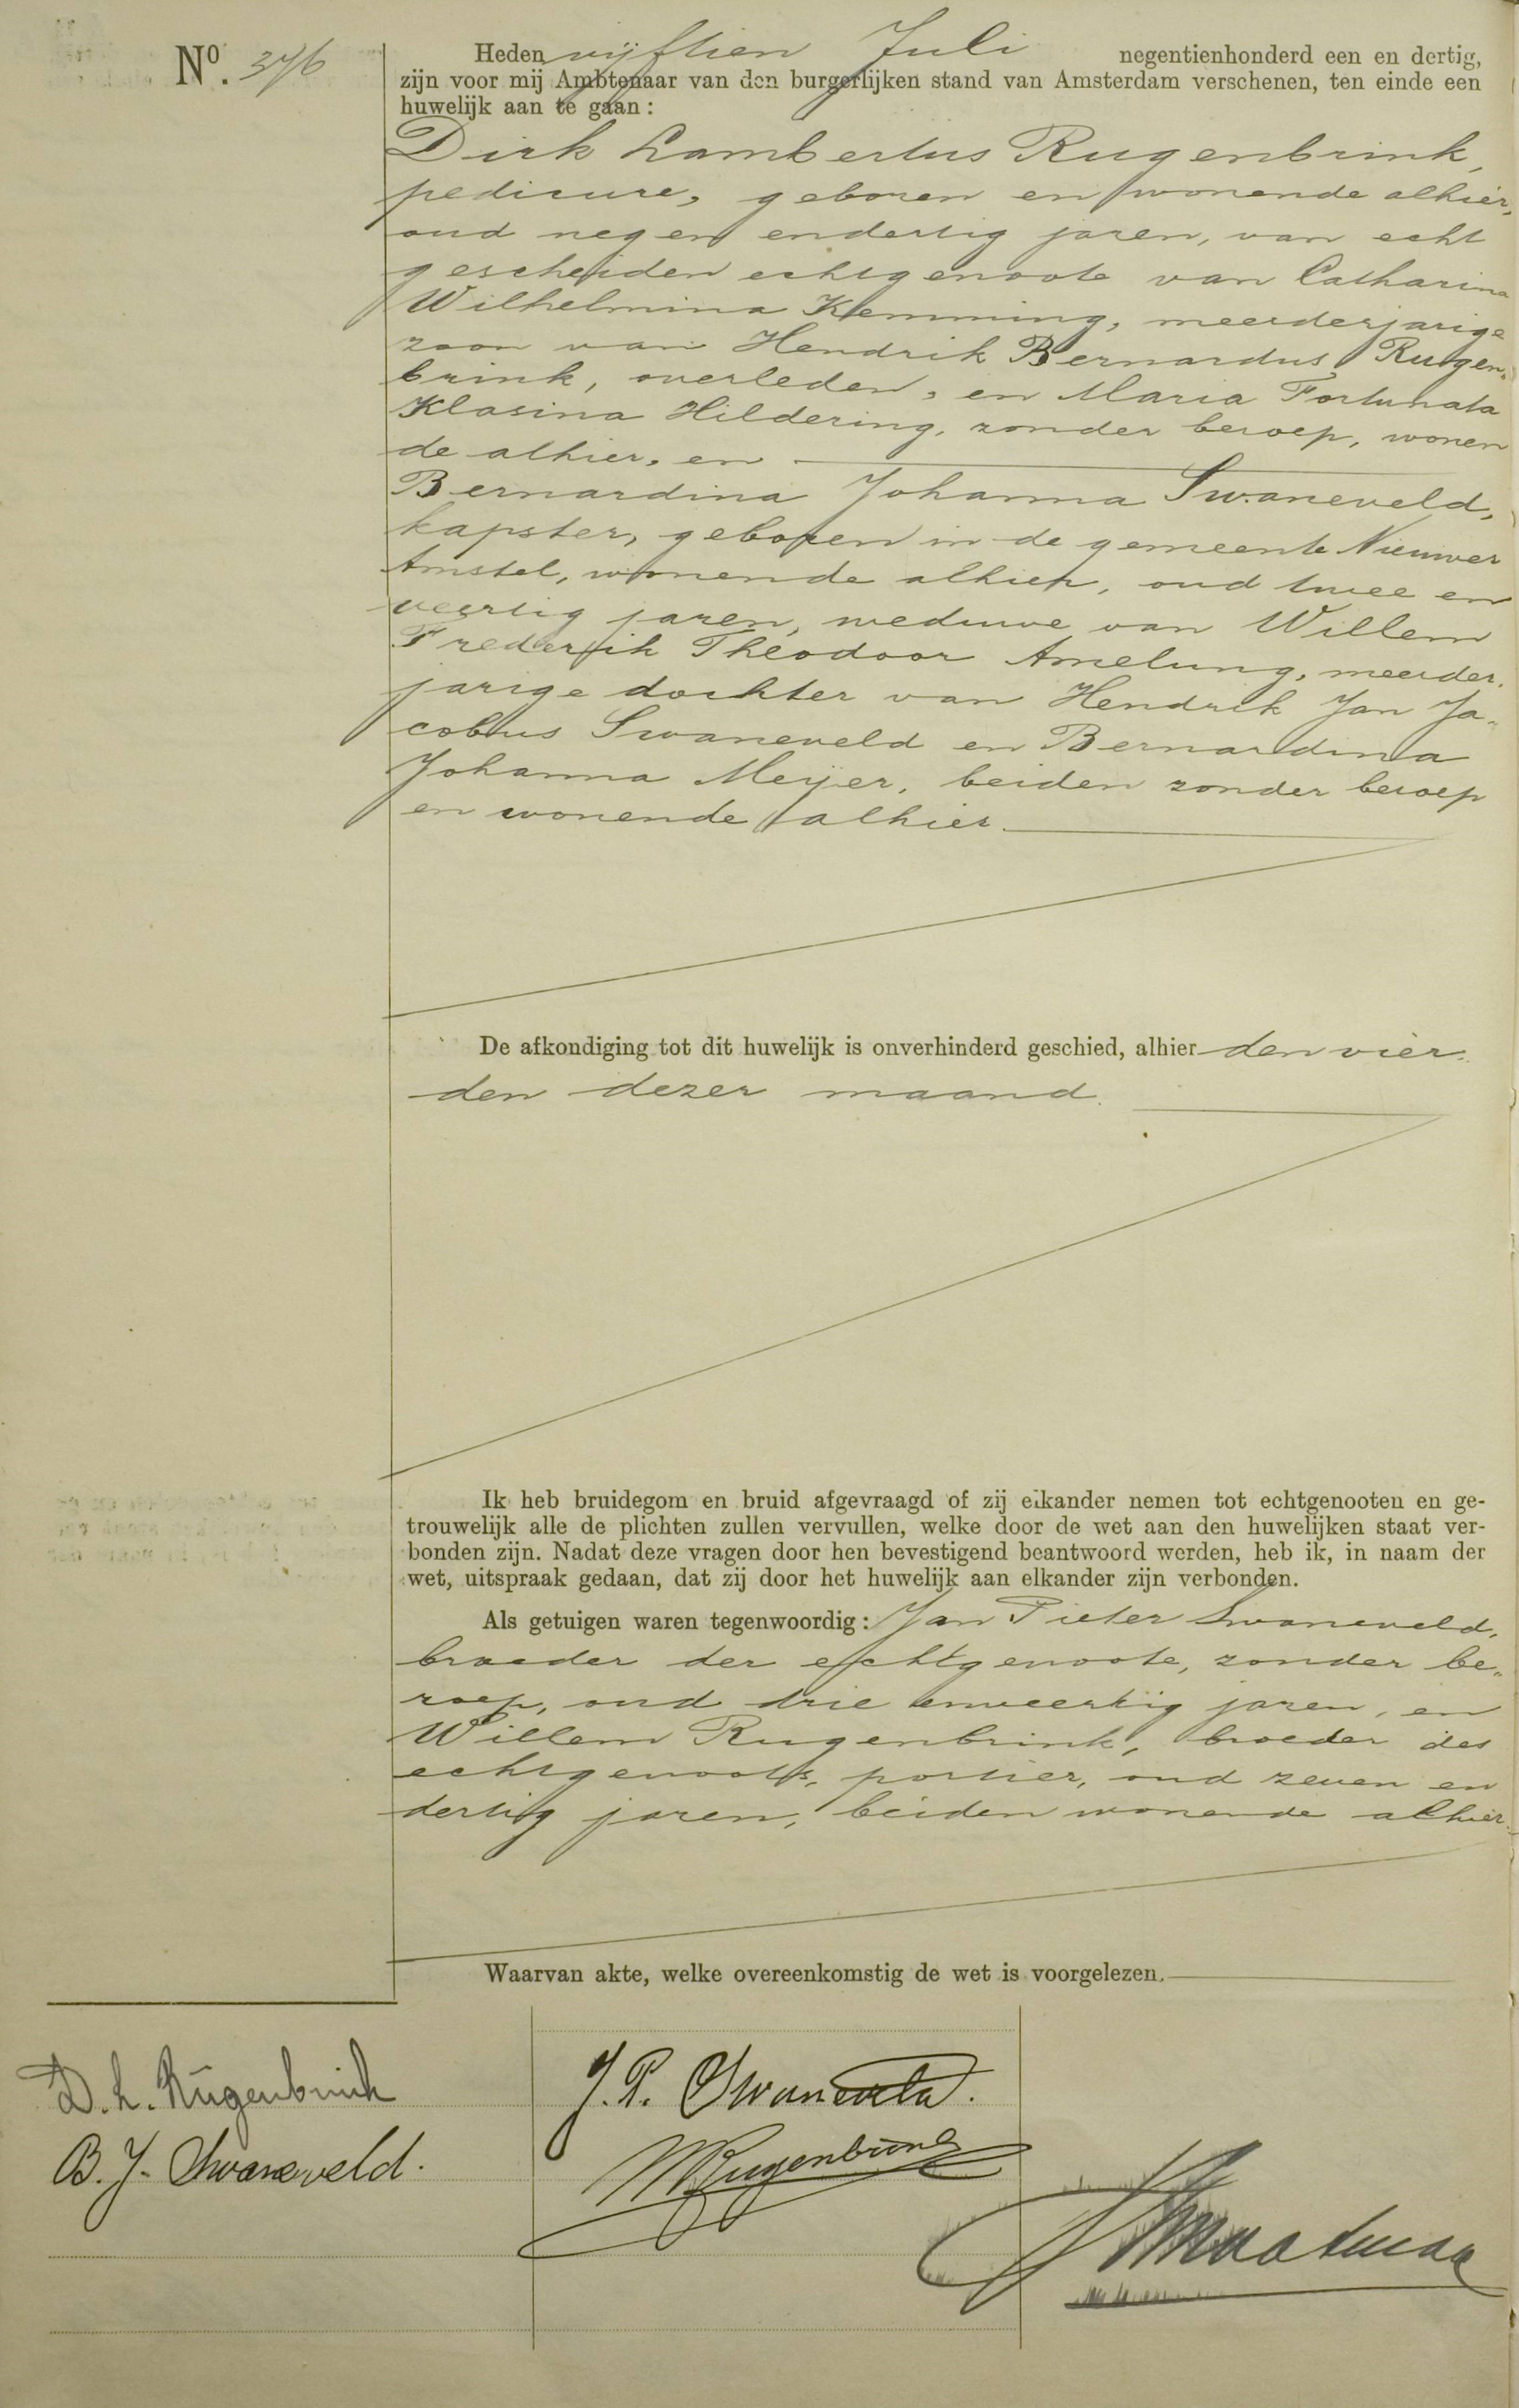 Nº. 376
Heden vijftien Juli negentienhonderd een en dertig,
zijn voor mij Ambtenaar van den burgerlijken stand van Amsterdam verschenen, ten einde een
huwelijk aan te gaan:
Dirk Lambertus Rugenbrink,
pedicure, geboren en wonende alhier,
oud negen en dertig jaren, van echt
gescheiden echtgenoote van Catharina
Wilhelmina Kemming, meerderjarige
zoon van Hendrik Bernardus Rugen-
brink, overleden, en Maria Fortunata
Klasina Hildering, zonder beroep, wonen
de alhier, en
Bernardina Johanna Swaneveld,
kapster, geboren in de gemeente Nieuwer
Amstel, wonende alhier, oud twee en
veertig jaren, weduwe van Willem
Frederik Theodoor Amelung, meerder-
jarige dochter van Hendrik Jan Ja-
cobus Swaneveld en Bernardina
Johanna Meijer, beiden zonder beroep
en wonende alhier.
De afkondiging tot dit huwelijk is onverhinderd geschied, alhier den vier-
den dezer maand.
Ik heb bruidegom en bruid afgevraagd of zij elkander nemen tot echtgenooten en ge-
trouwelijk alle de plichten zullen vervullen, welke door de wet aan den huwelijken staat ver-
bonden zijn. Nadat deze vragen door hen bevestigend beantwoord werden, heb ik, in naam der
wet, uitspraak gedaan, dat zij door het huwelijk aan elkander zijn verbonden.
Als getuigen waren tegenwoordig: Jan Pieter Swaneveld,
broeder der echtgenoote, zonder be-
roep, oud drie en veertig jaren, en
Willem Rugenbrink, broeder des
echtgenoots, portier, oud zeven en
dertig jaren, beiden wonende alhier.
Waarvan akte, welke overeenkomstig de wet is voorgelezen.
D. L. Rugenbrink
J. P. Swaneveld.
B. J. Swaneveld.
W Rugenbrink